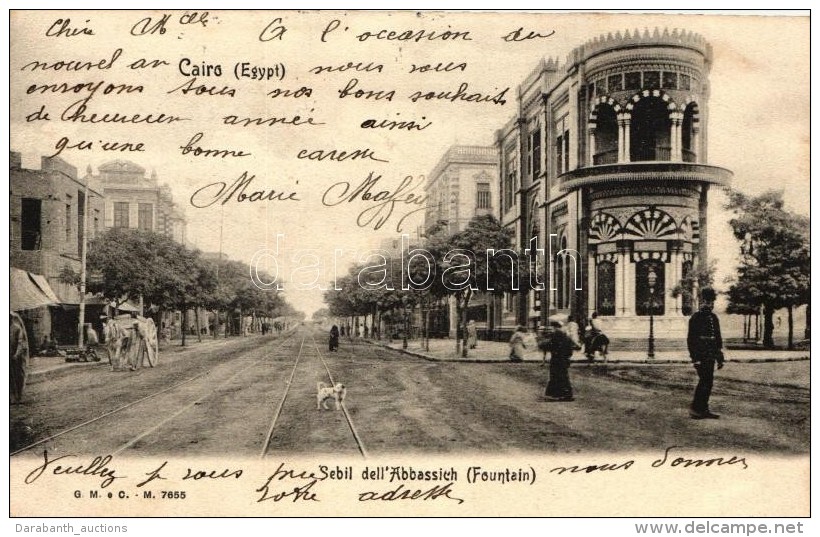 Chère Mlle A l'occasion du
nouvel an nous vous
Cairo (Egypt)
envoyons tous nos bons souhaits
de heureuse année ainsi
qu'une bonne caresse
Marie Maffey
darabanth
Veuillez je vous prie nous donner
votre adresse
Sebil dell'Abbassich (Fountain)
G. M. e C. - M. 7655
Darabanth_auctions
http://www.delcampe.net